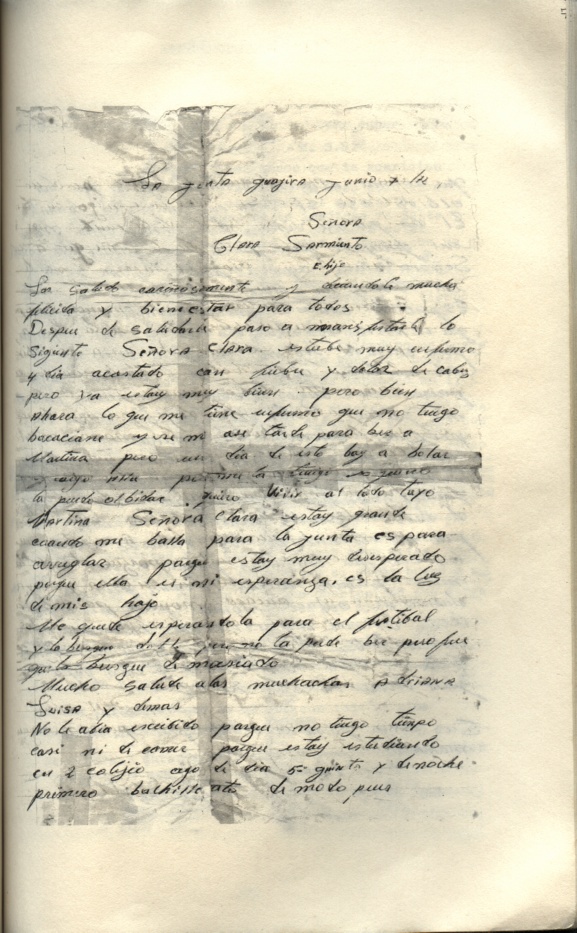 La junta guajira junio
Señora
Clara Sarmiento
e hijo
La saludo cariñosamente y deciandole mucha
felicida y bienestar para todos
Despue de saludarla paso a manifestarle lo
siguiente Señora Clara estube muy enfermo
4 dia acostado con fiebre y dolor de cabeza
pero ya estoy muy bien pero bien
ahora lo que me tiene enfermo que no tengo
bacacione y se me ase tarde para ber a
Martina pero un dia de este boy a bolar
la puedo olbidar quiero vivir al lado tuyo
Martina Señora Clara estoy grande
cuando me balla para la junta es para
arreglar porque estoy muy desesperado
porque ella es mi esperanza, es la luz
de mis hojo
Me quede esperandola para el festibal
y la busque no la pude ber pero fue
que la busque demasiado
Mucho salude a las muchachas Adriana
Luisa y dimas
No le abia escribido porque no tengo tiempo
casi ni de comer porque estoy estudiando
en 2 colejio ago de dia 5º quinto y de noche
primero bachillerato de modo pues